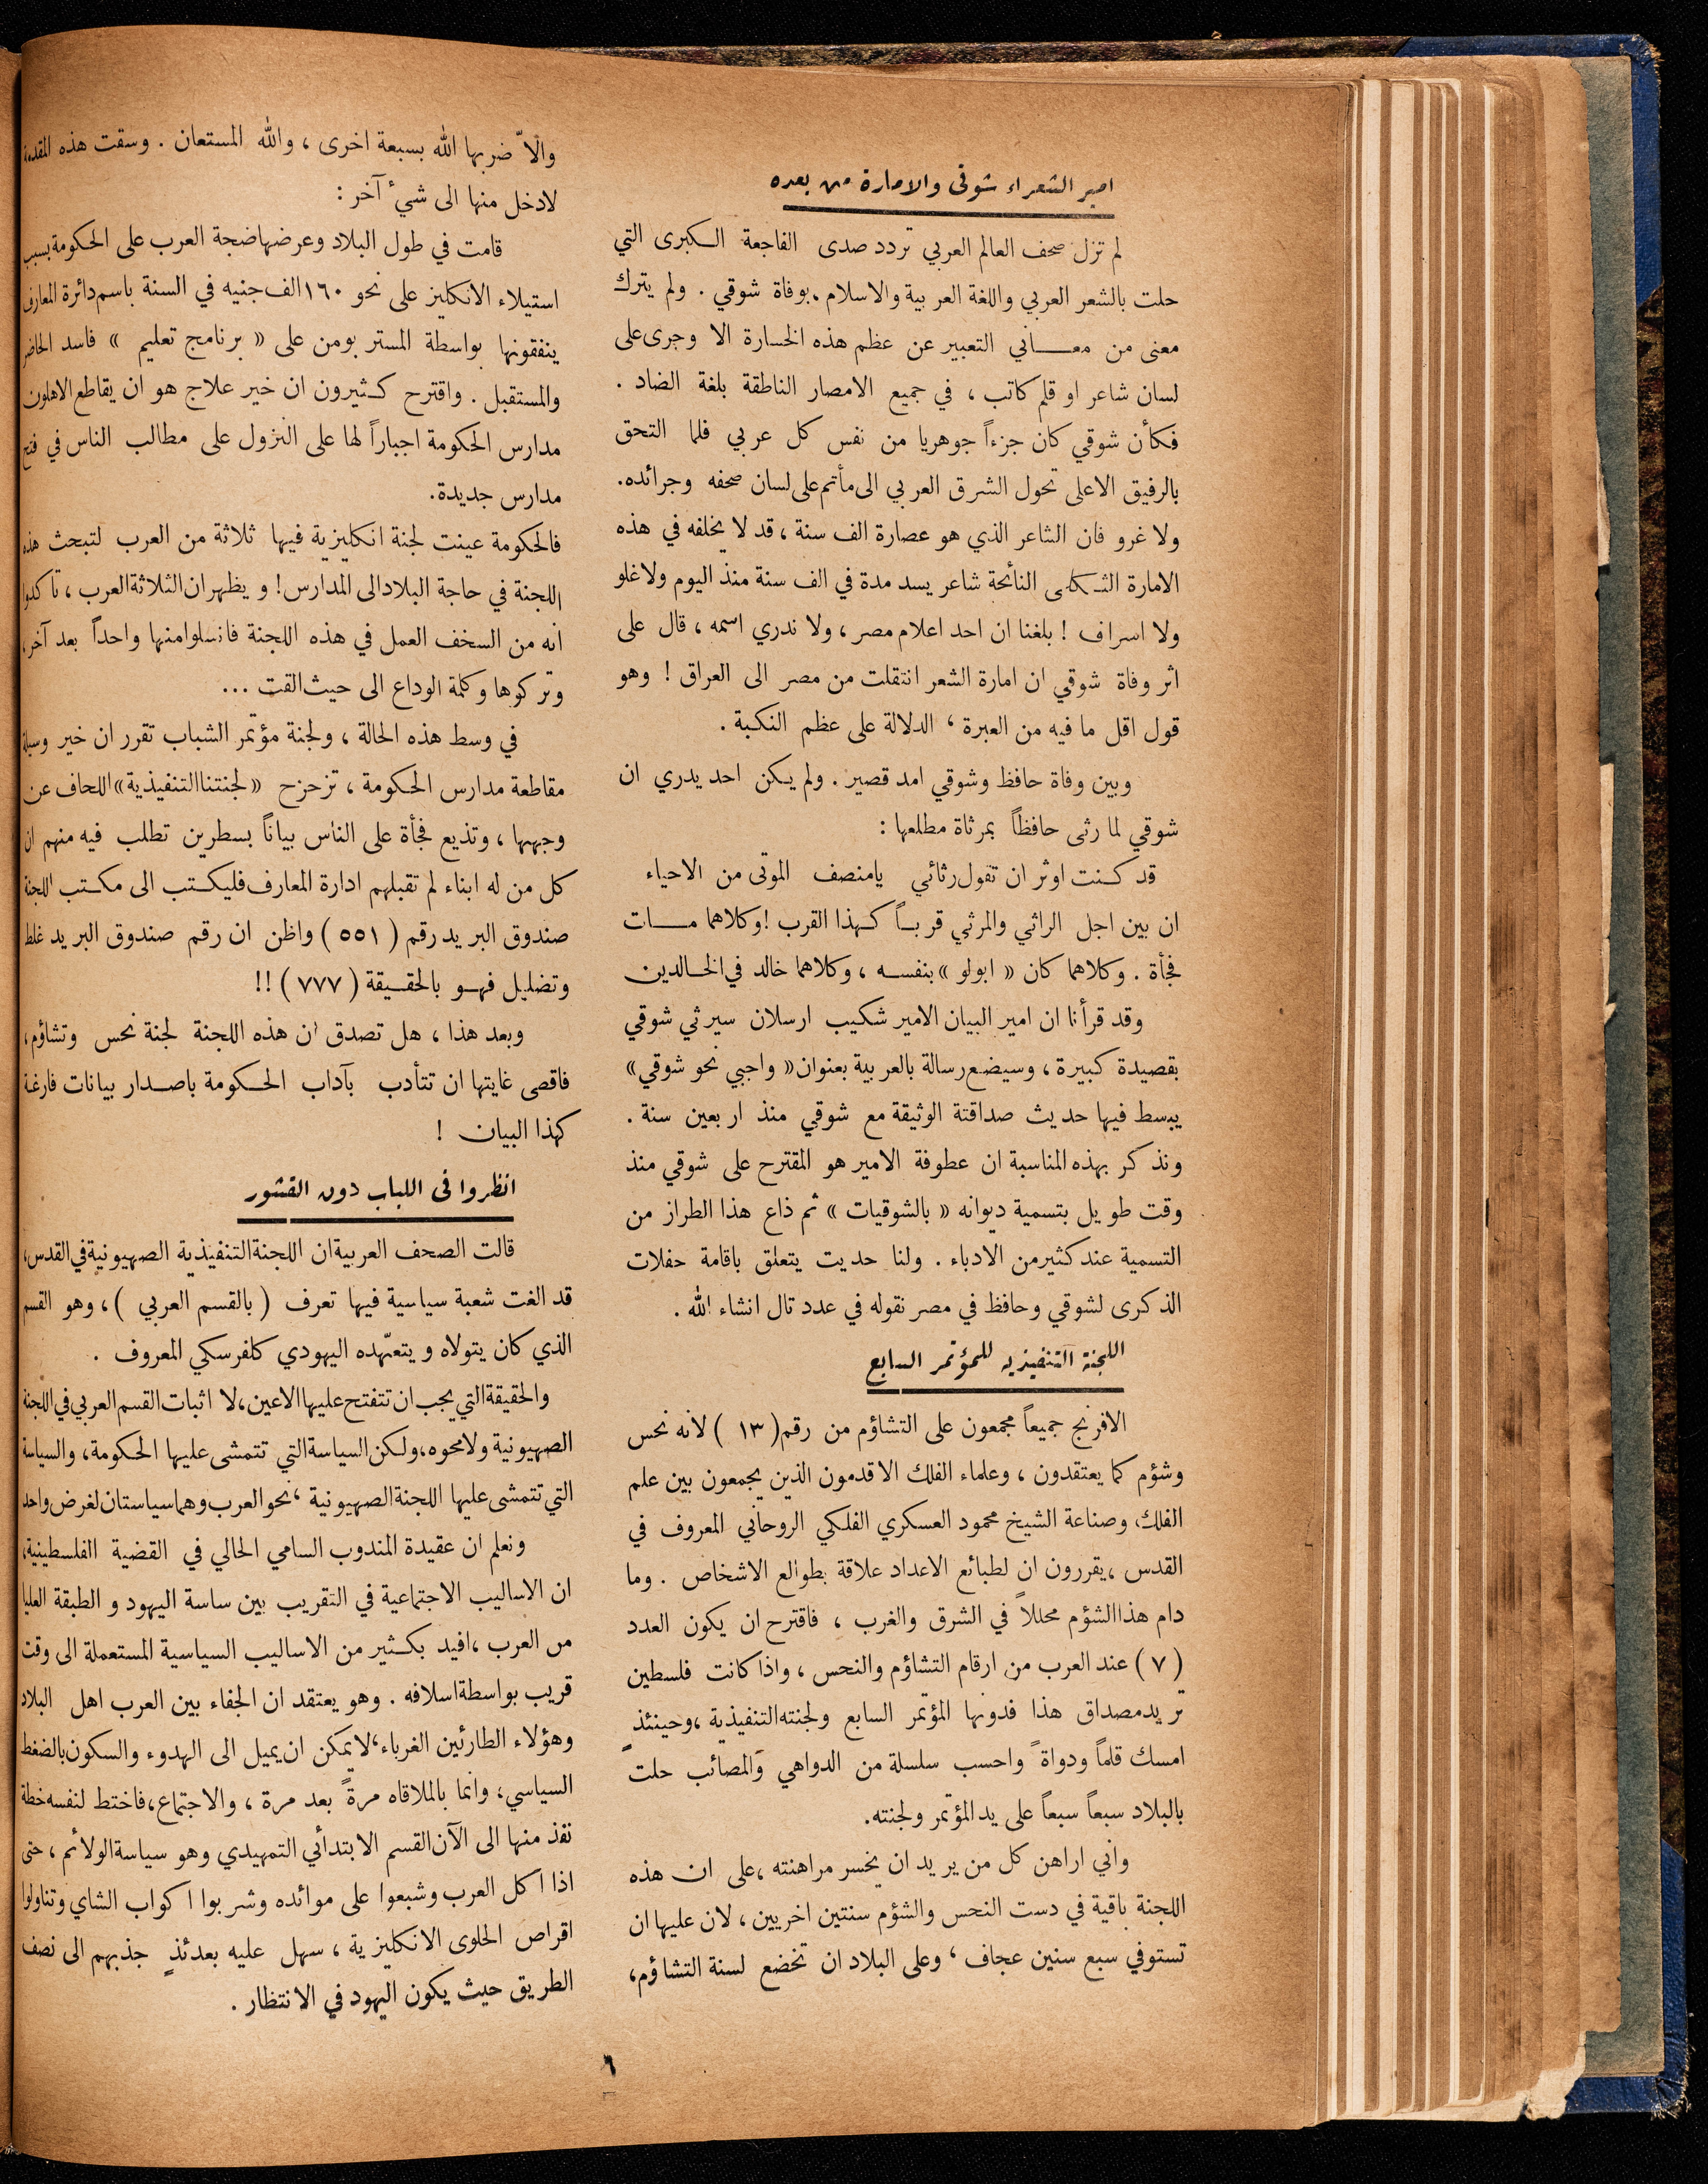 امير الشعراء شوقي والامارة من بعده
لم تزل صحف العالم العربي تردد صدى الفاجعة الكبرى التي
حلت بالشعر العربي واللغة العربية والاسلام بوفاة شوقي . ولم يترك
معنى من معاني التعبير عن عظم هذه الخسارة الا وجرى على
لسان شاعر او قلم كاتب ، في جميع الامصار الناطقة بلغة الضاد .
فكأن شوقي كان جزءاً جوهريا من نفس كل عربي فلما التحق
بالرفيق الاعلى تحول الشرق العربي الى مأتم على لسان صحفه وجرائده.
ولا غرو فان الشاعر الذي هو عصارة الف سنة ، قد لا يخلفه في هذه
الامارة الثكلى النائحة شاعر يسد مدة في الف سنة منذ اليوم ولا غلو
ولا اسراف ! بلغنا ان احد اعلام مصر ، ولا ندري اسمه ، قال على
اثر وفاة شوقي ان امارة الشعر انتقلت من مصر الى العراق ! وهو
قول اقل ما فيه من العبرة ، الدلالة على عظم النكبة .
وبين وفاة حافظ وشوقي امد قصير . ولم يكن احد يدري ان
شوقي لما رثى حافظاً بمرثاة مطلعها :
قد كنت اوثر ان تقول رثائي يامنصف الموتى من الاحياء
ان بين اجل الراثي والمرثي قرباً كهذا القرب ! وكلاهما مات
فجأة . وكلاهما كان « ابولو » بنفسه ، وكلاهما خالد في الخالدين
وقد قرأنا ان امير البيان الامير شكيب ارسلان سيرثي شوقي
بقصيدة كبيرة ، وسيضع رسالة بالعربية بعنوان « واجبي نحو شوقي »
يبسط فيها حديث صداقتة الوثيقة مع شوقي منذ اربعين سنة .
ونذكر بهذه المناسبة ان عطوفة الامير هو المقترح على شوقي منذ
وقت طويل بتسمية ديوانه « بالشوقيات » ثم ذاع هذا الطراز من
التسمية عند كثير من الادباء . ولنا حديث يتعلق باقامة حفلات
الذكرى لشوقي وحافظ في مصر نقوله في عدد تال انشاء الله .
اللجنة التنفيذيه للمؤتمر السابع
الافرنج جميعاً مجمعون على التشاؤم من رقم ( ١٣ ) لانه نحس
وشؤم كما يعتقدون ، وعلماء الفلك الاقدمون الذين يجمعون بين علم
الفلك، وصناعة الشيخ محمود العسكري الفلكي الروحاني المعروف في
القدس ، يقررون ان لطبائع الاعداد علاقة بطوالع الاشخاص . وما
دام هذا الشؤم محللاً في الشرق والغرب ، فاقترح ان يكون العدد
( ٧ ) عند العرب من ارقام التشاؤم والنحس ، واذا كانت فلسطين
تريد مصداق هذا فدونها المؤتمر السابع ولجنته التنفيذية ، وحينئذٍ
امسك قلماً ودواةً واحسب سلسلة من الدواهي والمصائب حلت
بالبلاد سبعاً سبعاً على يد المؤتمر ولجنته.
واني اراهن كل من يريد ان يخسر مراهنته ، على ان هذه
اللجنة باقية في دست النحس والشؤم سنتين اخريين ، لان عليها ان
تستوفي سبع سنين عجاف ، وعلى البلاد ان تخضع لسنة التشاؤم،
والاّ ضربها الله بسبعة اخرى ، والله المستعان . وسقت هذه المقدمة
لادخل منها الى شيء آخر :
قامت في طول البلاد وعرضها ضجة العرب على الحكومة بسبب
استيلاء الانكليز على نحو ١٦٠ الف جنيه في السنة باسم دائرة المعارف
ينفقونها بواسطة المستر بومن على « برنامج تعليم » فاسد الحاضر
والمستقبل . واقترح كثيرون ان خير علاج هو ان يقاطع الاهلون
مدارس الحكومة اجباراً لها على النزول على مطالب الناس في فتح
مدارس جديدة.
فالحكومة عينت لجنة انكليزية فيها ثلاثة من العرب لتبحث هذه
اللجنة في حاجة البلاد الى المدارس ! ويظهر ان الثلاثة العرب ، تأكدوا
انه من السخف العمل في هذه اللجنة فانسلوا منها واحداً بعد آخر،
وتركوها وكلمة الوداع الى حيث القت ...
في وسط هذه الحالة ، ولجنة مؤتمر الشباب تقرر ان خير وسيلة
مقاطعة مدارس الحكومة ، تزحزح « لجنتنا التنفيذية » اللحاف عن
وجهها ، وتذيع فجأة على الناس بياناً بسطرين تطلب فيه منهم ان
كل من له ابناء لم تقبلهم ادارة المعارف فليكتب الى مكتب اللجنة
صندوق البريد رقم ( ٥٥١ ) واظن ان رقم صندوق البريد غلط
وتضليل فهو بالحقيقة ( ٧٧٧ ) !!
وبعد هذا ، هل تصدق ان هذه اللجنة لجنة نحس وتشاؤم،
فاقصى غايتها ان تتأدب بآداب الحكومة باصدار بيانات فارغة
كهذا البيان !
انظروا في اللباب دون القشور
قالت الصحف العربية ان اللجنة التنفيذية الصهيونية في القدس،
قد الغت شعبة سياسية فيها تعرف ( بالقسم العربي ) ، وهو القسم
الذي كان يتولاه ويتعهّده اليهودي كلفرسكي المعروف .
والحقيقة التي يجب ان تتفتح عليها الاعين، لا اثبات القسم العربي في اللجنة
الصهيونية ولا محوه، ولكن السياسة التي تتمشى عليها الحكومة، والسياسة
التي تتمشى عليها اللجنة الصهيونية ، نحو العرب وهما سياستان لغرض واحد
ونعلم ان عقيدة المندوب السامي الحالي في القضية الفلسطينية،
ان الاساليب الاجتماعية في التقريب بين ساسة اليهود و الطبقة العليا
من العرب ، افيد بكثير من الاساليب السياسية المستعملة الى وقت
قريب بواسطة اسلافه . وهو يعتقد ان الجفاء بين العرب اهل البلاد
وهؤلاء الطارئين الغرباء، لا يمكن ان يميل الى الهدوء والسكون بالضغط
السياسي، وانما بالملاقاه مرةً بعد مرة ، والاجتماع، فاختط لنفسه خطة
نفذ منها الى الآن القسم الابتدائي التمهيدي وهو سياسة الولائم ، حتى
اذا اكل العرب وشبعوا على موائده وشربوا اكواب الشاي وتناولوا
اقراص الحلوى الانكليزية ، سهل عليه بعدئذٍ جذبهم الى نصف
الطريق حيث يكون اليهود في الانتظار .
٦